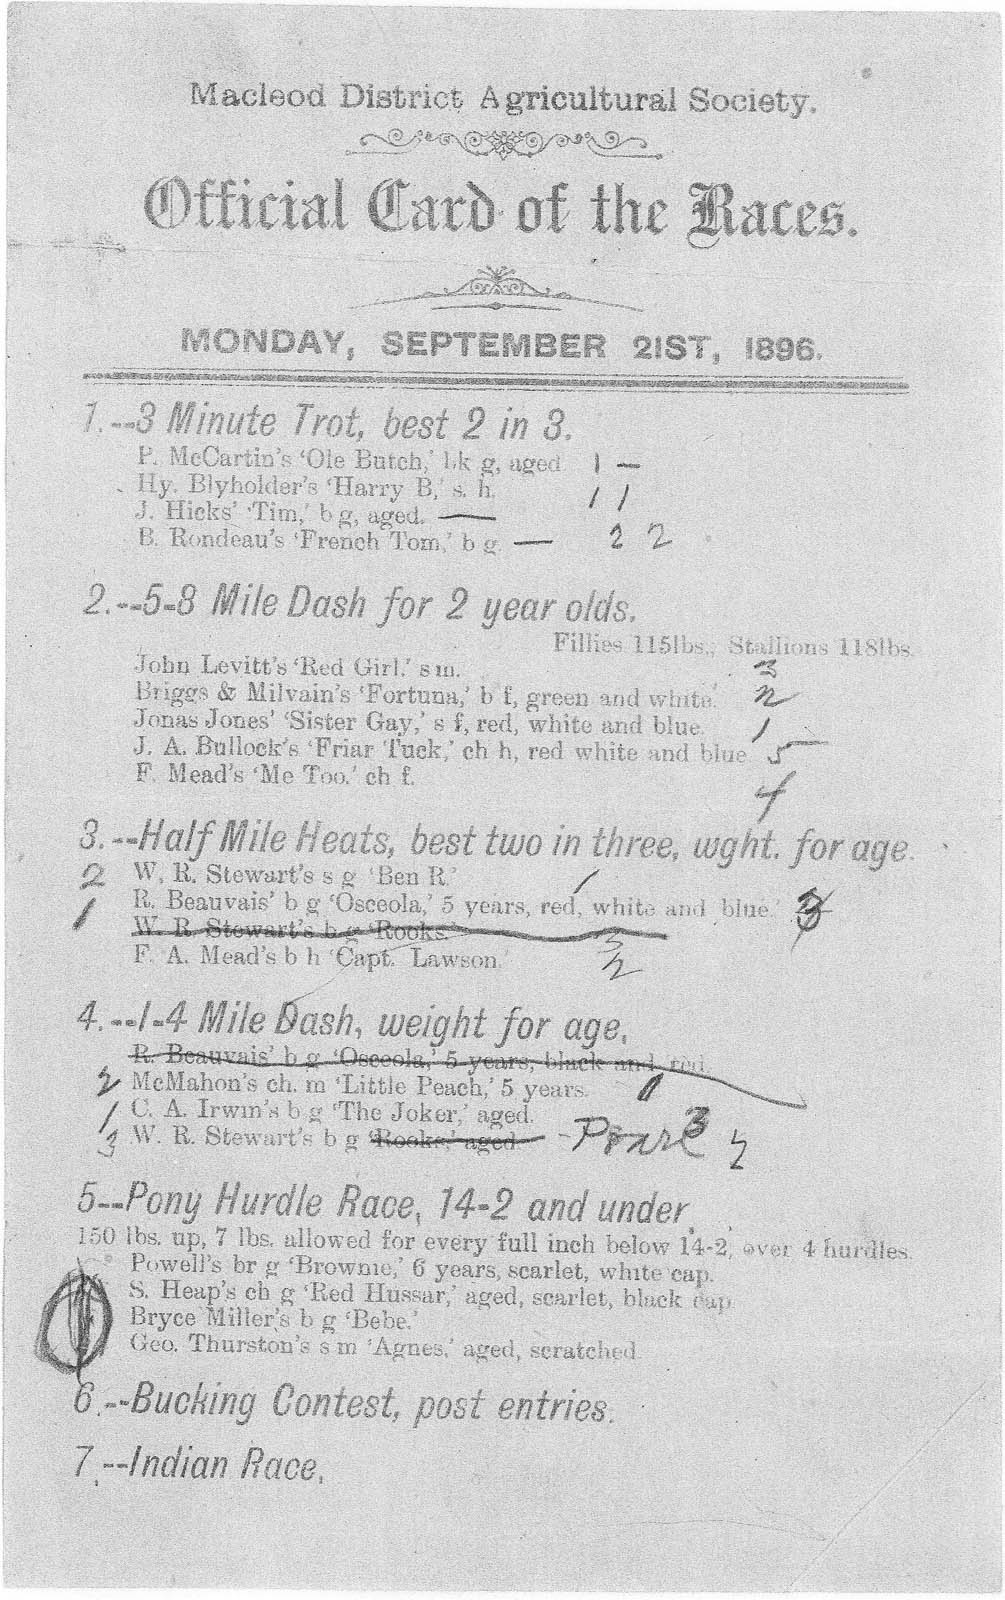 Macleod District Agricultural Society.
Official Card of the Races.
MONDAY, SEPTEMBER 21ST, 1896.
1.--3 Minute Trot, best 2 in 3.
P. McCartin's 'Ole Butch,' bk g, aged 1 —
Hy. Blyholder's 'Harry B,' s. h. 1 1
J. Hicks' 'Tim,' b g, aged. —
B. Rondeau's 'French Tom,' b g. — 2 2
2.--5-8 Mile Dash for 2 year olds.
Fillies 115lbs., Stallions 118lbs.
John Levitt's 'Red Girl.' s m. 3
Briggs & Milvain's 'Fortuna,' b f, green and white. 2
Jonas Jones' 'Sister Gay,' s f, red, white and blue. 1
J. A. Bullock's 'Friar Tuck,' ch h, red white and blue 5
F. Mead's 'Me Too.' ch f. 4
3.--Half Mile Heats, best two in three, wght. for age.
2 W. R. Stewart's s g 'Ben R.' 1
1 R. Beauvais' b g 'Osceola,' 5 years, red, white and blue. 3
W. R. Stewart's b g 'Rooks.' 3
F. A. Mead's b h 'Capt. Lawson.' 2
4.--1-4 Mile Dash, weight for age.
R. Beauvais' b g 'Osceola,' 5 years, black and red.
2 McMahon's ch. m 'Little Peach,' 5 years. 1
1 C. A. Irwin's b g 'The Joker,' aged. 3
3 W. R. Stewart's b g 'Rooks,' aged. - Pearl 2
5--Pony Hurdle Race, 14-2 and under.
150 lbs. up, 7 lbs. allowed for every full inch below 14-2, over 4 hurdles.
Powell's br g 'Brownie,' 6 years, scarlet, white cap.
S. Heap's ch g 'Red Hussar,' aged, scarlet, black cap.
Bryce Miller's b g 'Bebe.'
Geo. Thurston's s m 'Agnes,' aged, scratched.
6.--Bucking Contest, post entries.
7.--Indian Race.